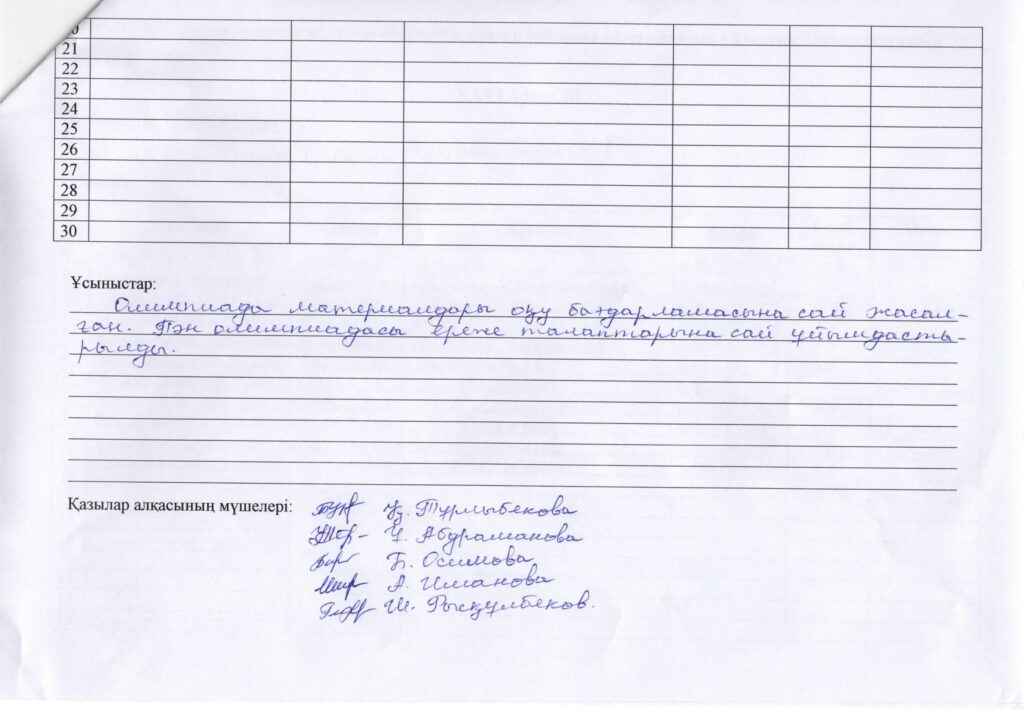 0
21
22
23
24
25
26
27
28
29
30
Ұсыныстар:
Олимпиада материалдары оқу бағдарламасына сай жасал-
ған. Пән олимпиадасы ереже талаптарына сай ұйымдасты-
рылды.
Қазылар алқасының мүшелері:
Ұ. Тұрлыбекова
Ұ. Абдраманова
Б. Осимова
А. Иманова
Ш. Рысқұлбеков.